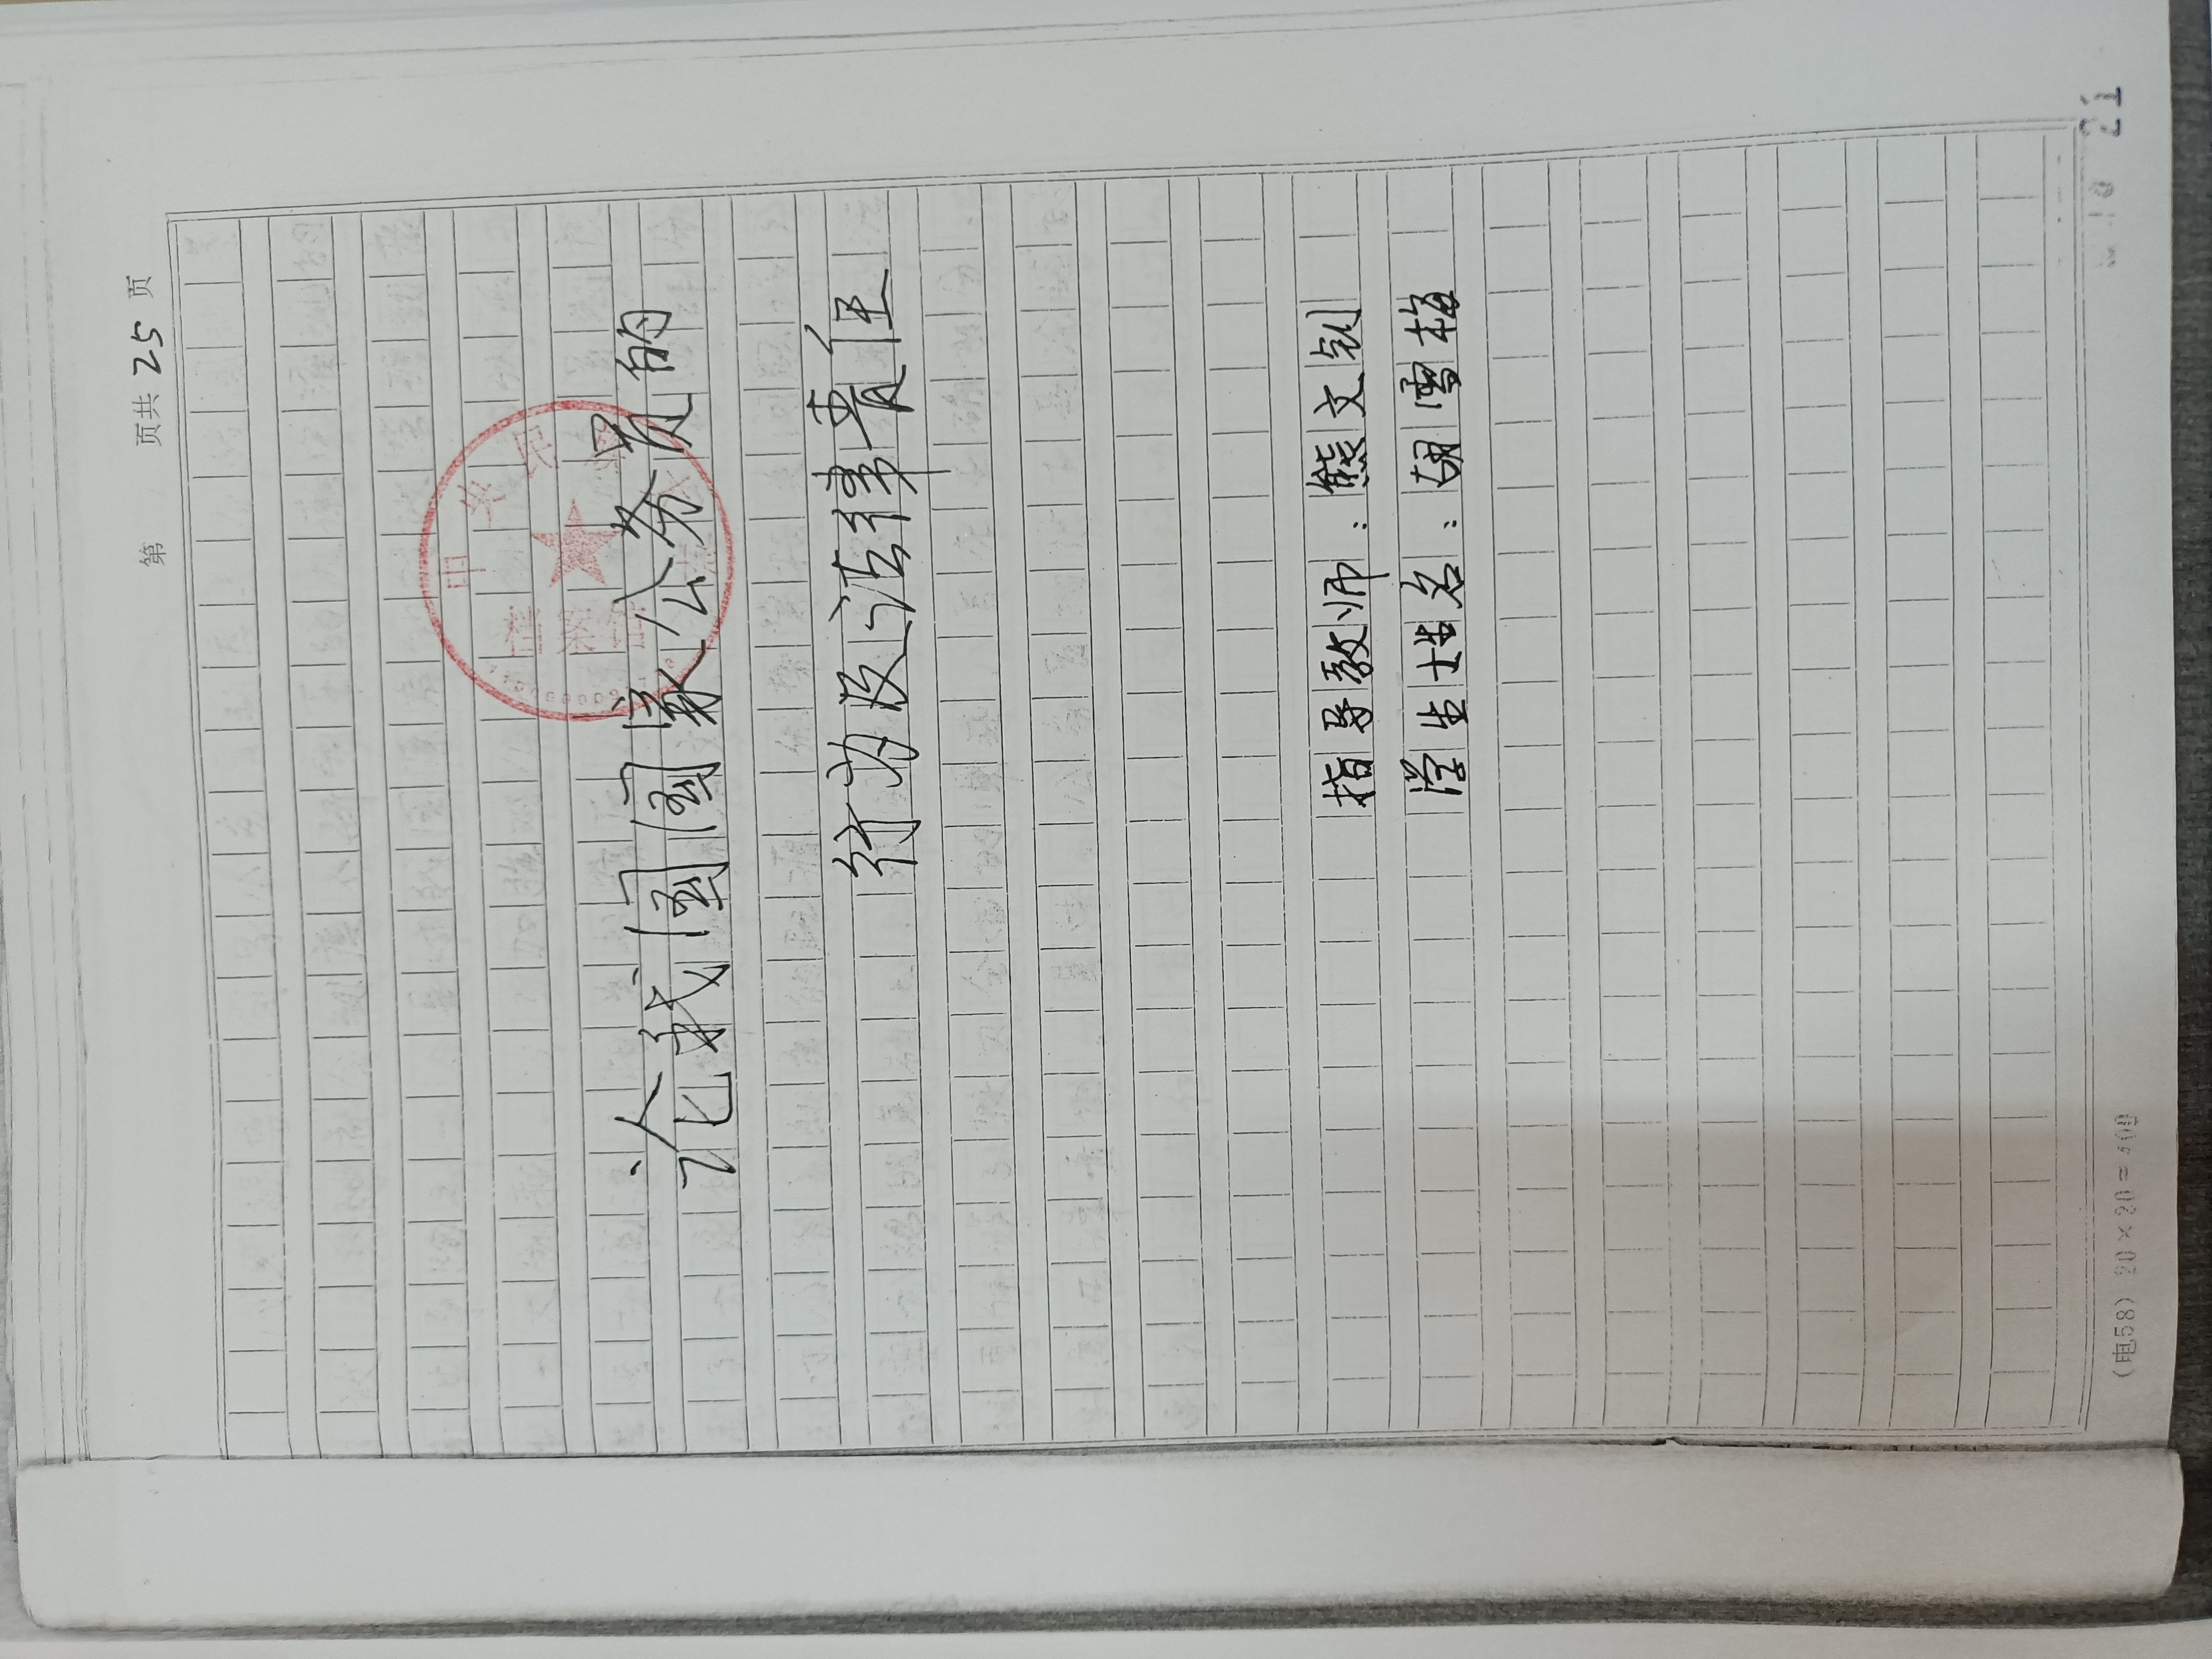 第 页共 25 页
论我国国家公务员的
行为及法律责任
指导教师：熊文钊
学生姓名：胡雪梅
档案馆
21
(电58) 20×20=400